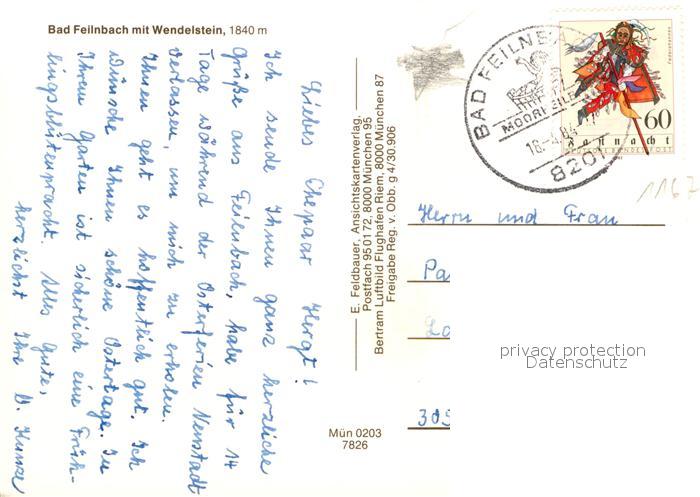 Bad Feilnbach mit Wendelstein, 1840 m
Liebes Ehepaar Hergt!
Ich sende Ihnen ganz herzliche
Grüße aus Feilnbach, habe für 14
Tage während der Osterferien Neustadt
verlassen, um mich zu erholen.
Ihnen geht es hoffentlich gut. Ich
wünsche Ihnen schöne Ostertage. In
Ihrem Garten ist sicherlich eine Früh-
lingsblütenpracht. Alles Gute,
herzlichst Ihre D. Kunze
E. Feldbauer, Ansichtskartenverlag,
Postfach 95 01 72, 8000 München 95
Bertram Luftbild Flughafen Riem, 8000 München 87
Freigabe Reg. v. Obb. g 4/30.906
Mün 0203
7826
BAD FEILNB
MOORHEIL
18-4.84
8201
60
Fasnacht
DEUTSCHE BUNDESPOST
1167
Herrn und Frau
Pa
Lo
309
privacy protection
Datenschutz